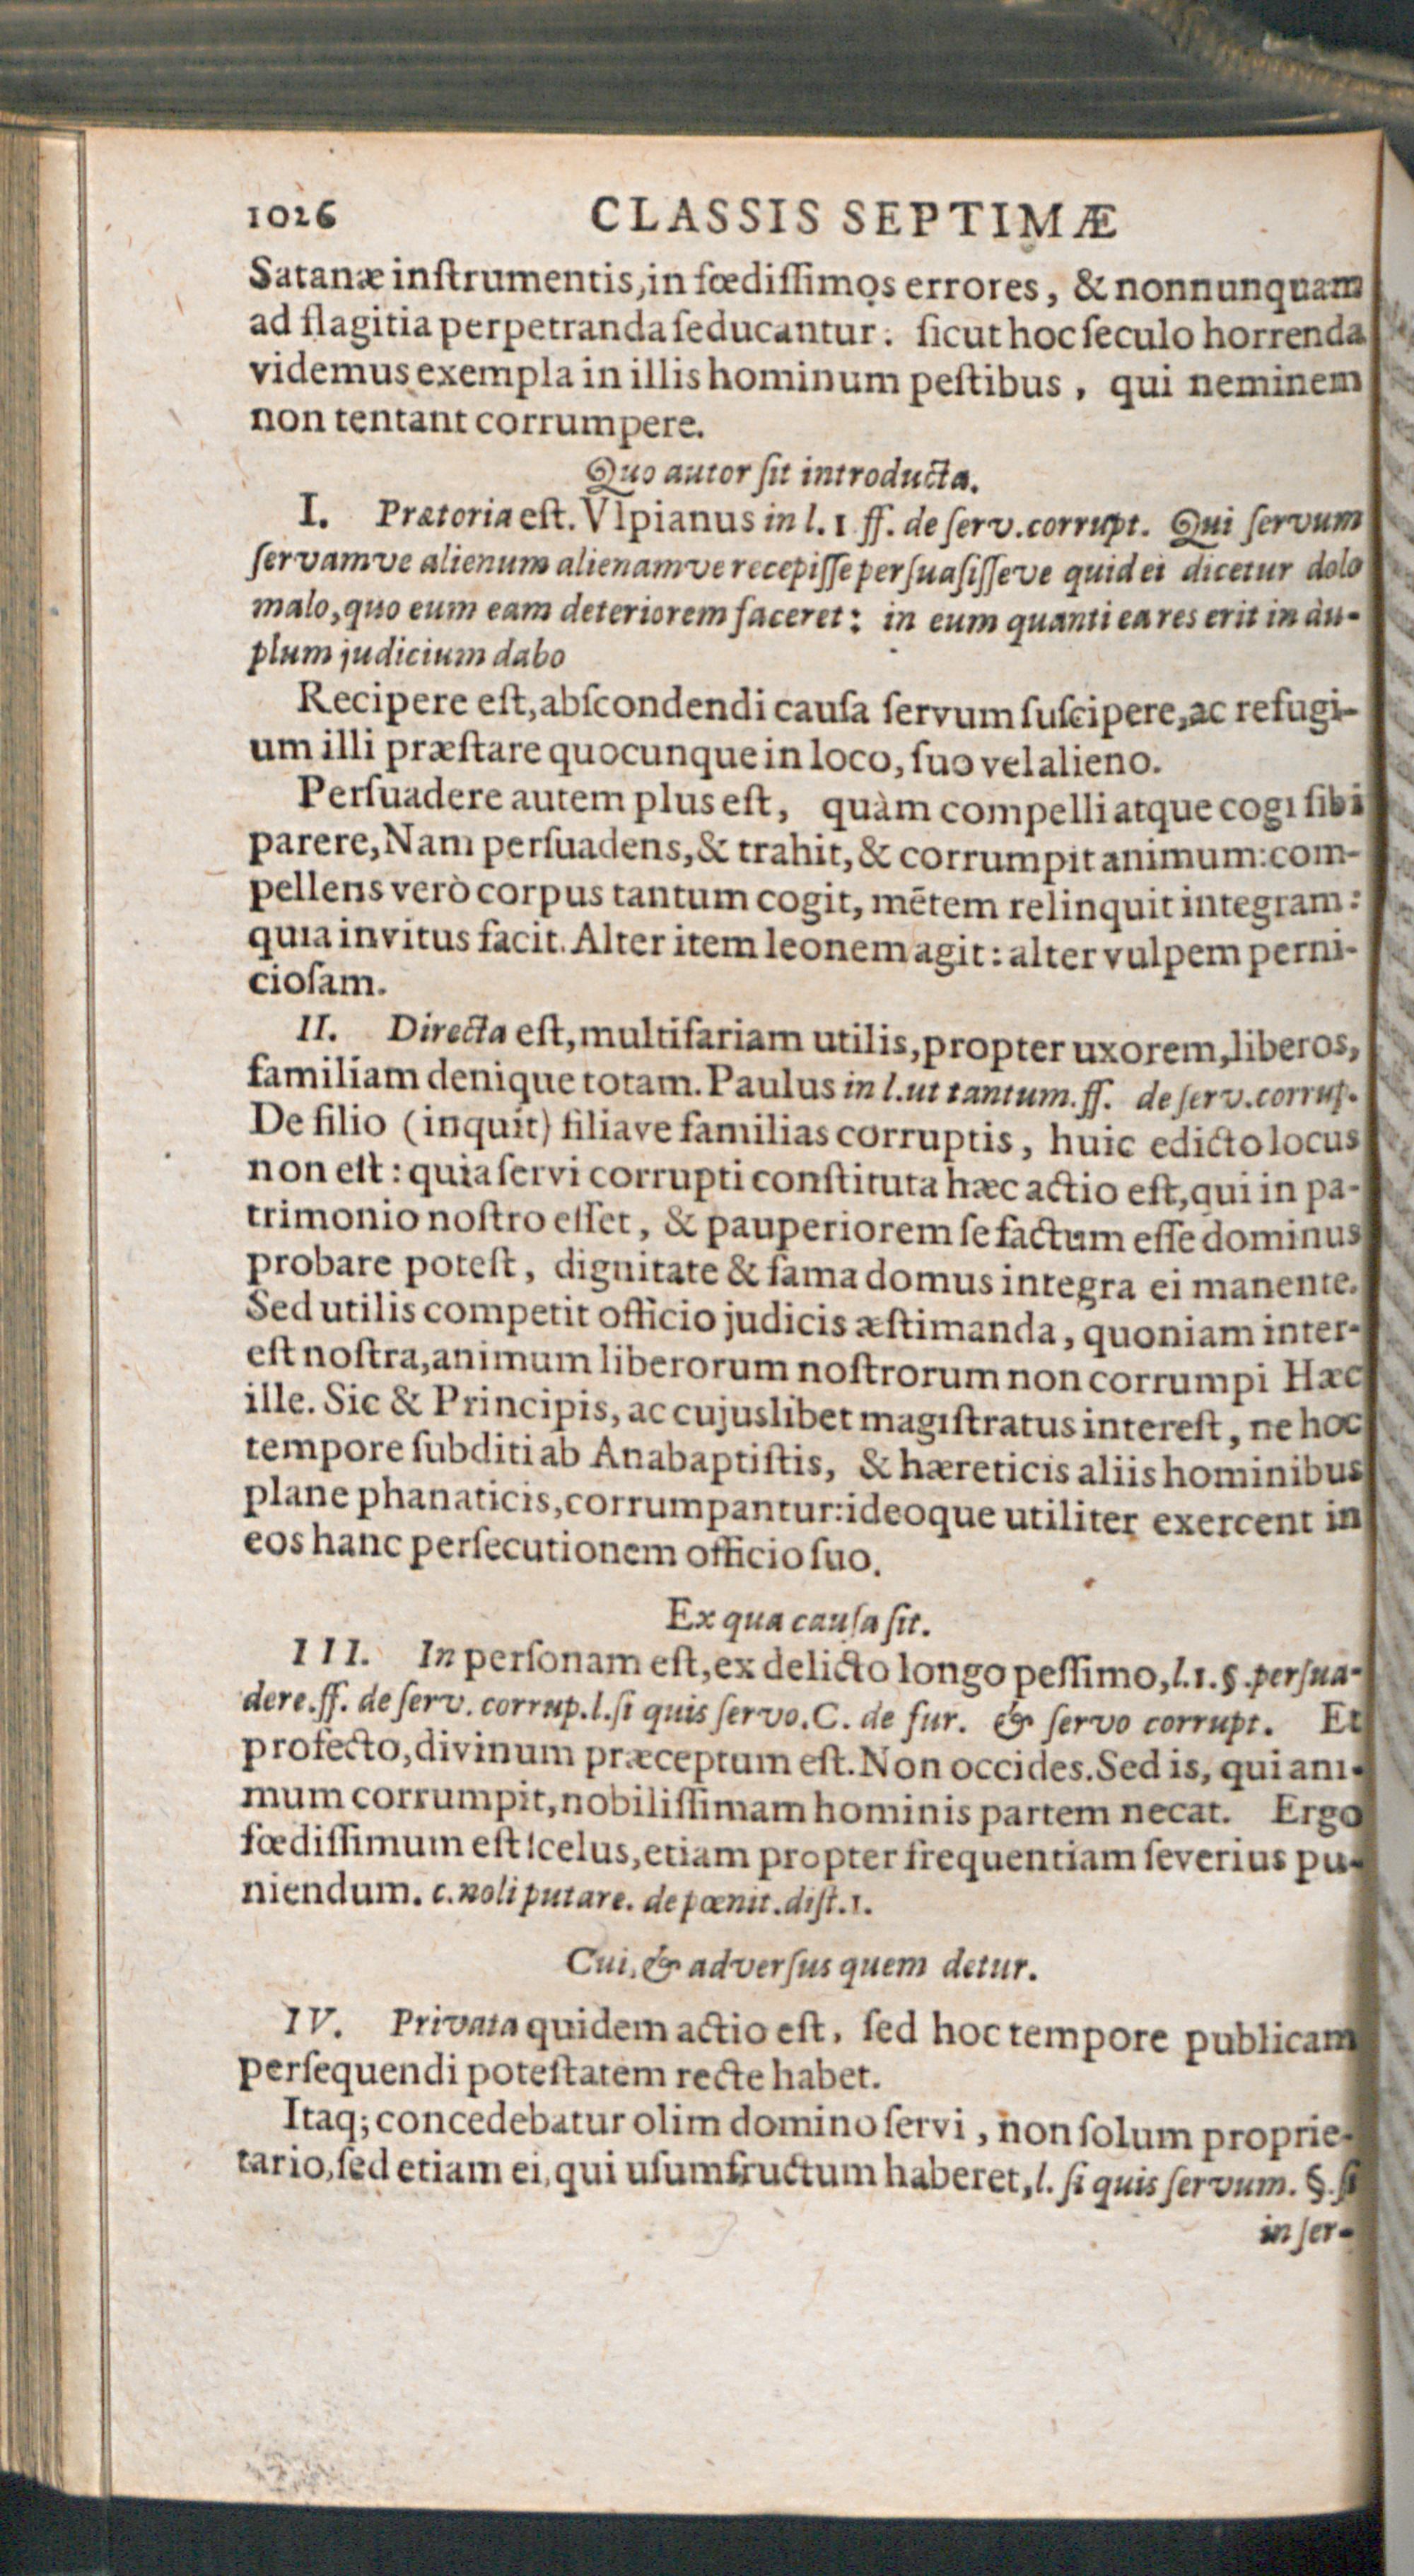 1026 CLASSIS SEPTIMÆ
Satanæ inſtrumentis, in fœdiſſimos errores, & nonnunquam
ad flagitia perpetranda ſeducantur: ſicut hoc ſeculo horrenda
videmus exempla in illis hominum peſtibus, qui neminem
non tentant corrumpere.
Quo autor ſit introducta.
I. Prætoria eſt. Vlpianus in l. 1 ff. de ſerv. corrupt. Qui ſervum
ſervamve alienum alienamve recepiſſe perſuaſiſſeve quid ei dicetur dolo
malo, quo eum eam deteriorem faceret: in eum quanti ea res erit in du-
plum judicium dabo
Recipere eſt, abſcondendi cauſa ſervum ſuſcipere, ac refugi-
um illi præſtare quocunque in loco, ſuo vel alieno.
Perſuadere autem plus eſt, quàm compelli atque cogi ſibi
parere, Nam perſuadens, & trahit, & corrumpit animum: com-
pellens verò corpus tantum cogit, mētem relinquit integram:
quia invitus facit. Alter item leonem agit: alter vulpem perni-
cioſam.
II. Directa eſt, multifariam utilis, propter uxorem, liberos,
familiam denique totam. Paulus in l. ut tantum. ff. de ſerv. corrup.
De filio (inquit) filiave familias corruptis, huic edicto locus
non eſt: quia ſervi corrupti conſtituta hæc actio eſt, qui in pa-
trimonio noſtro eſſet, & pauperiorem ſe factum eſſe dominus
probare poteſt, dignitate & fama domus integra ei manente.
Sed utilis competit officio judicis æſtimanda, quoniam inter-
eſt noſtra, animum liberorum noſtrorum non corrumpi Hæc
ille. Sic & Principis, ac cujuslibet magiſtratus intereſt, ne hoc
tempore ſubditi ab Anabaptiſtis, & hæreticis aliis hominibus
plane phanaticis, corrumpantur: ideoque utiliter exercent in
eos hanc perſecutionem officio ſuo.
Ex qua cauſa ſit.
III. In perſonam eſt, ex delicto longo peſſimo, l. 1. §. perſua-
dere. ff. de ſerv. corrup. l. ſi quis ſervo. C. de fur. & ſervo corrupt. Et
profecto, divinum præceptum eſt. Non occides. Sed is, qui ani-
mum corrumpit, nobiliſſimam hominis partem necat. Ergo
fœdiſſimum eſt ſcelus, etiam propter frequentiam ſeverius pu-
niendum. c. noli putare. de pœnit. diſt. 1.
Cui, & adverſus quem detur.
IV. Privata quidem actio eſt, ſed hoc tempore publicam
perſequendi poteſtatem recte habet.
Itaq; concedebatur olim domino ſervi, non ſolum proprie-
tario, ſed etiam ei, qui uſumfructum haberet, l. ſi quis ſervum. §. ſi
in ſer-